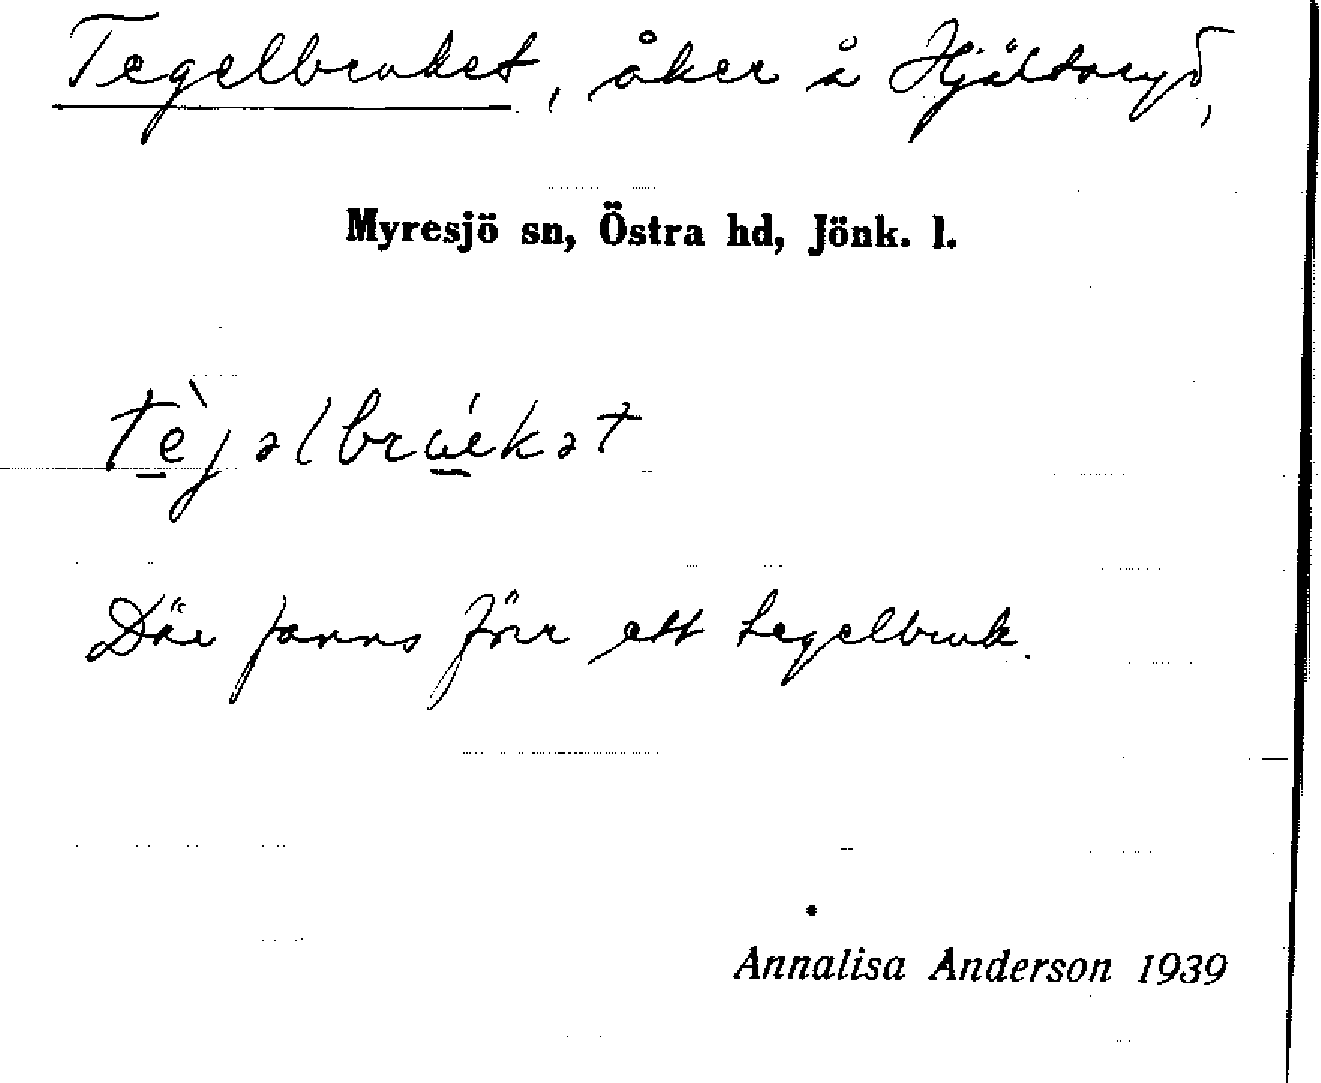 Tegelbruket, åker å Hjältaryd,
Myresjö sn, Östra hd, Jönk. l.
tèjəlbrúekət
Där fanns förr ett tegelbruk.
Annalisa Anderson 1939